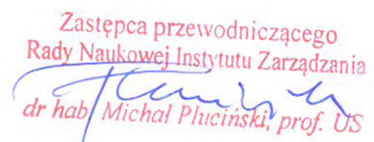 Zastępca przewodniczącego
Rady Naukowej Instytutu Zarządzania
dr hab. Michał Pluciński, prof. US